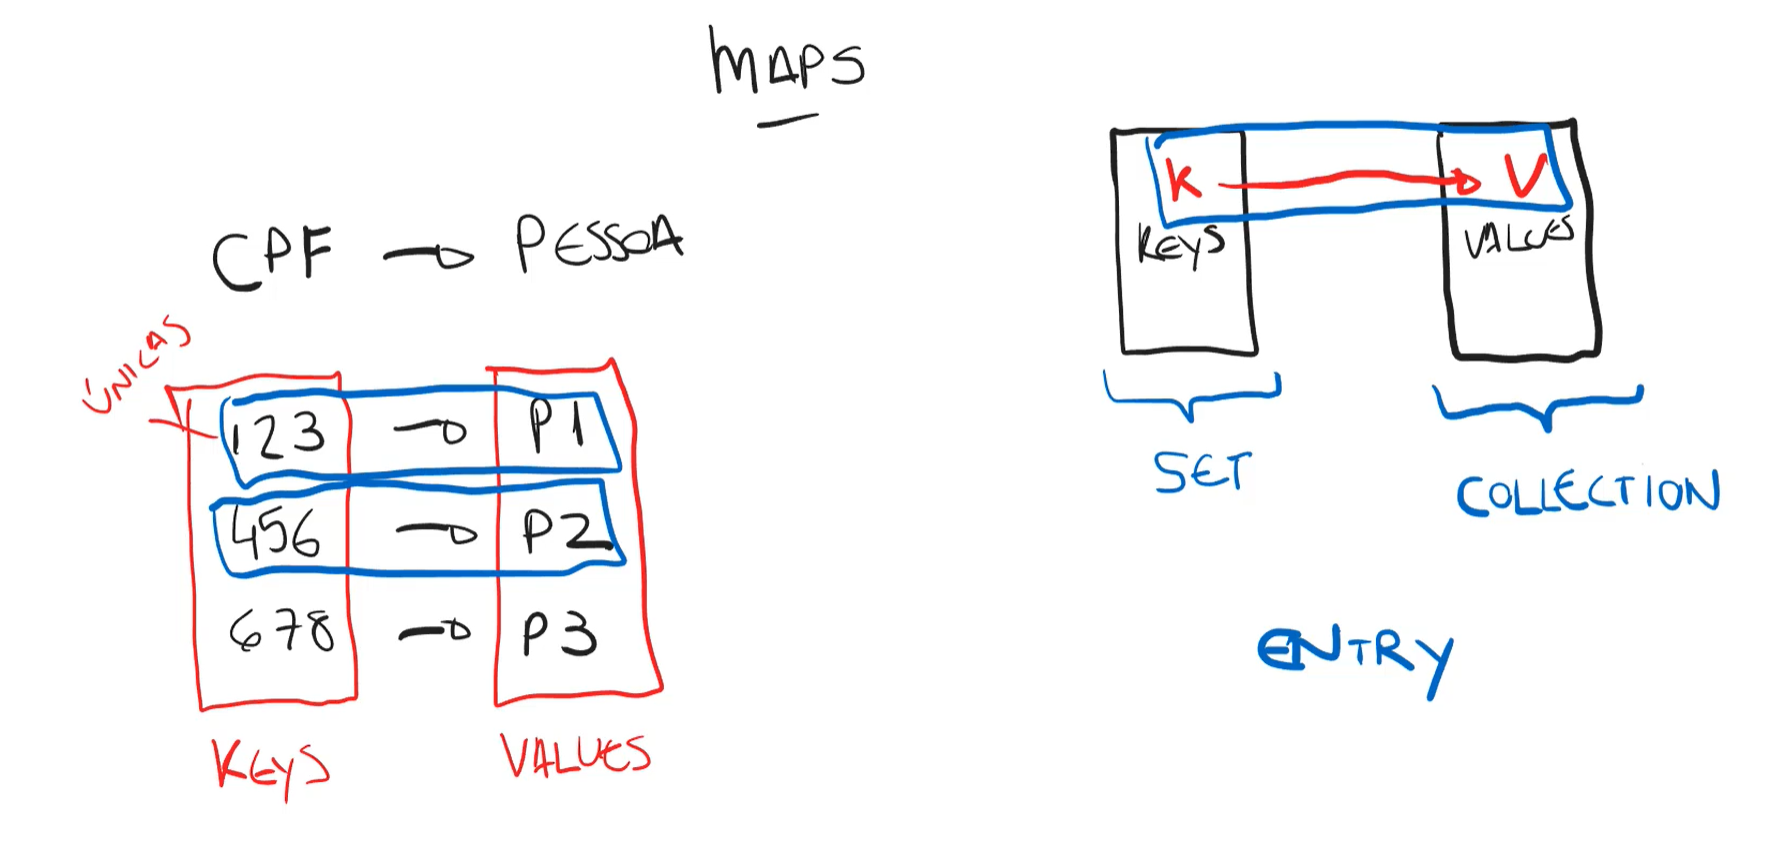 MAPS
CPF → PESSOA
ÚNICAS
123 → P1
456 → P2
678 → P3
KEYS VALUES
K → V
KEYS VALUES
SET COLLECTION
ENTRY